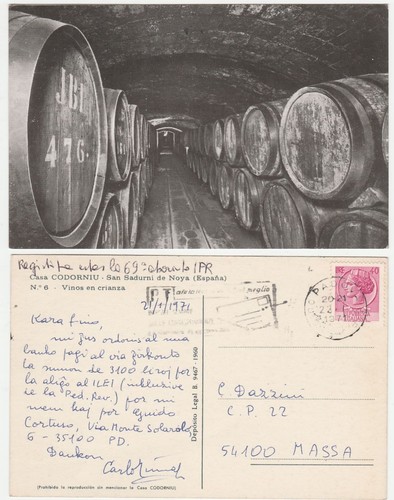 JBI
476.
Registita estas la 69a abonnto IPR
Casa CODORNIU - San Sadurni de Noya (España)
N.º 6 - Vinos en crianza
21/1/1971
meglio
22
1971
Kara Gino,
mi ĵus ordonis al mia
banko pagi al via ĝirkonto
la sumon de 3100 liroj por
la aliĝo al ILEI (inkluzive
de la Ped. Rev.) por mi
mem kaj por Guido
Cortuso, Via Monte Solarolo
6 - 35100 PD.
Dankon
Depósito Legal B. 9467 - 1960
C. Dazzini
C.P. 22
54100 MASSA
(Prohibida la reproducción sin mencionar la Casa CODORNIU)